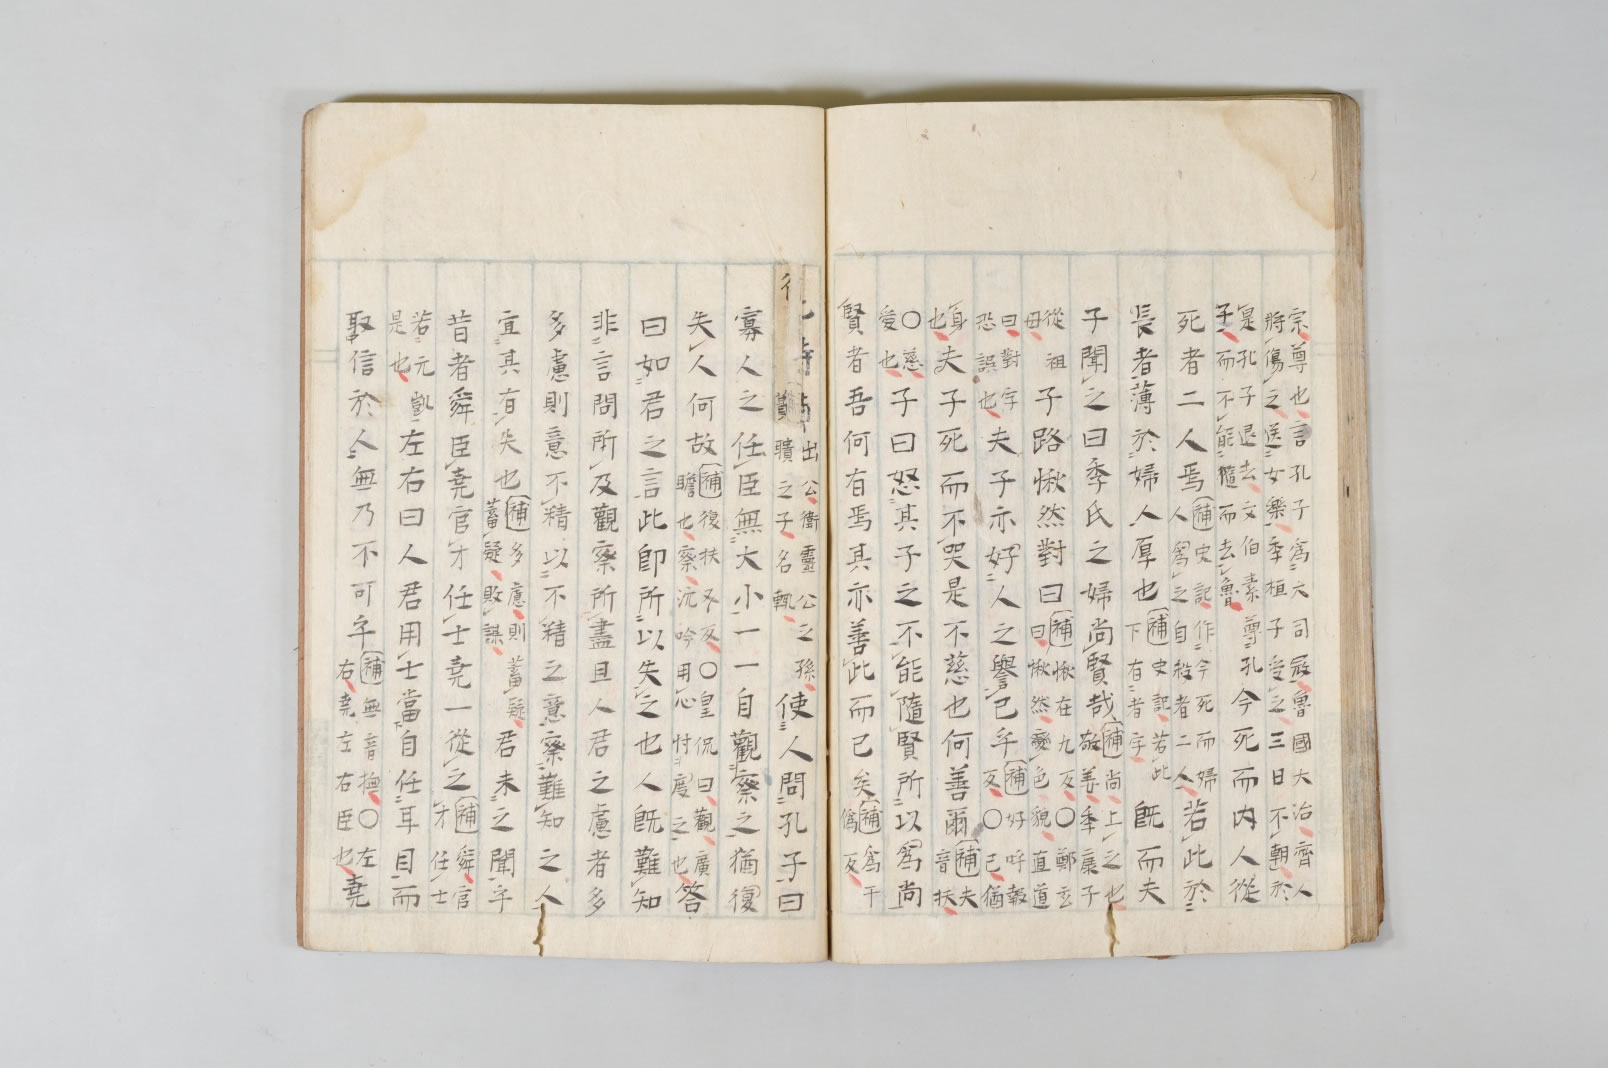 宗尊也言孔子爲大司宼魯國大治齊人
將傷之送女樂季桓子受之三日不朝於
是孔子退去文伯素尊孔
子而不能隨而去魯
今死而内人從
死者二人焉
補史記作今死而婦
人爲之自殺者二人
若此於
長者薄於婦人厚也
補史記若此
下有者字
既而夫
子聞之曰季氏之婦尚賢哉
補尚上之也
敬姜季康子
從祖
母
子路愀然對曰
補愀在九反〇鄭玄
曰愀然變色貌直道
曰對字
恐誤也
夫子亦好人之譽已乎
補好呼報
反〇已猶
身
也
夫子死而不哭是不慈也何善爾
補夫
音扶
〇慈
愛也
子曰怒其子之不能隨賢所以爲尚
賢者吾何有焉其亦善此而已矣
補爲于
僞反
出公衞靈公之孫
蒯聵之子名輒
使人問孔子曰
寡人之任臣無大小一一自觀察之猶復
失人何故
補復扶又反〇皇侃曰觀廣
瞻也察沉吟用心忖度之也
答
曰如君之言此卽所以失之也人既難知
非言問所及觀察所盡且人君之慮者多
多慮則意不精以不精之意察難知之人
宜其有失也
補多慮則蓄疑
蓄疑敗謀
君未之聞乎
昔者舜臣堯官才任士堯一從之
補舜官
才任士
若元凱
是也
左右曰人君用士當自任耳目而
取信於人無乃不可乎
補無音撫〇左
右堯左右臣也
堯